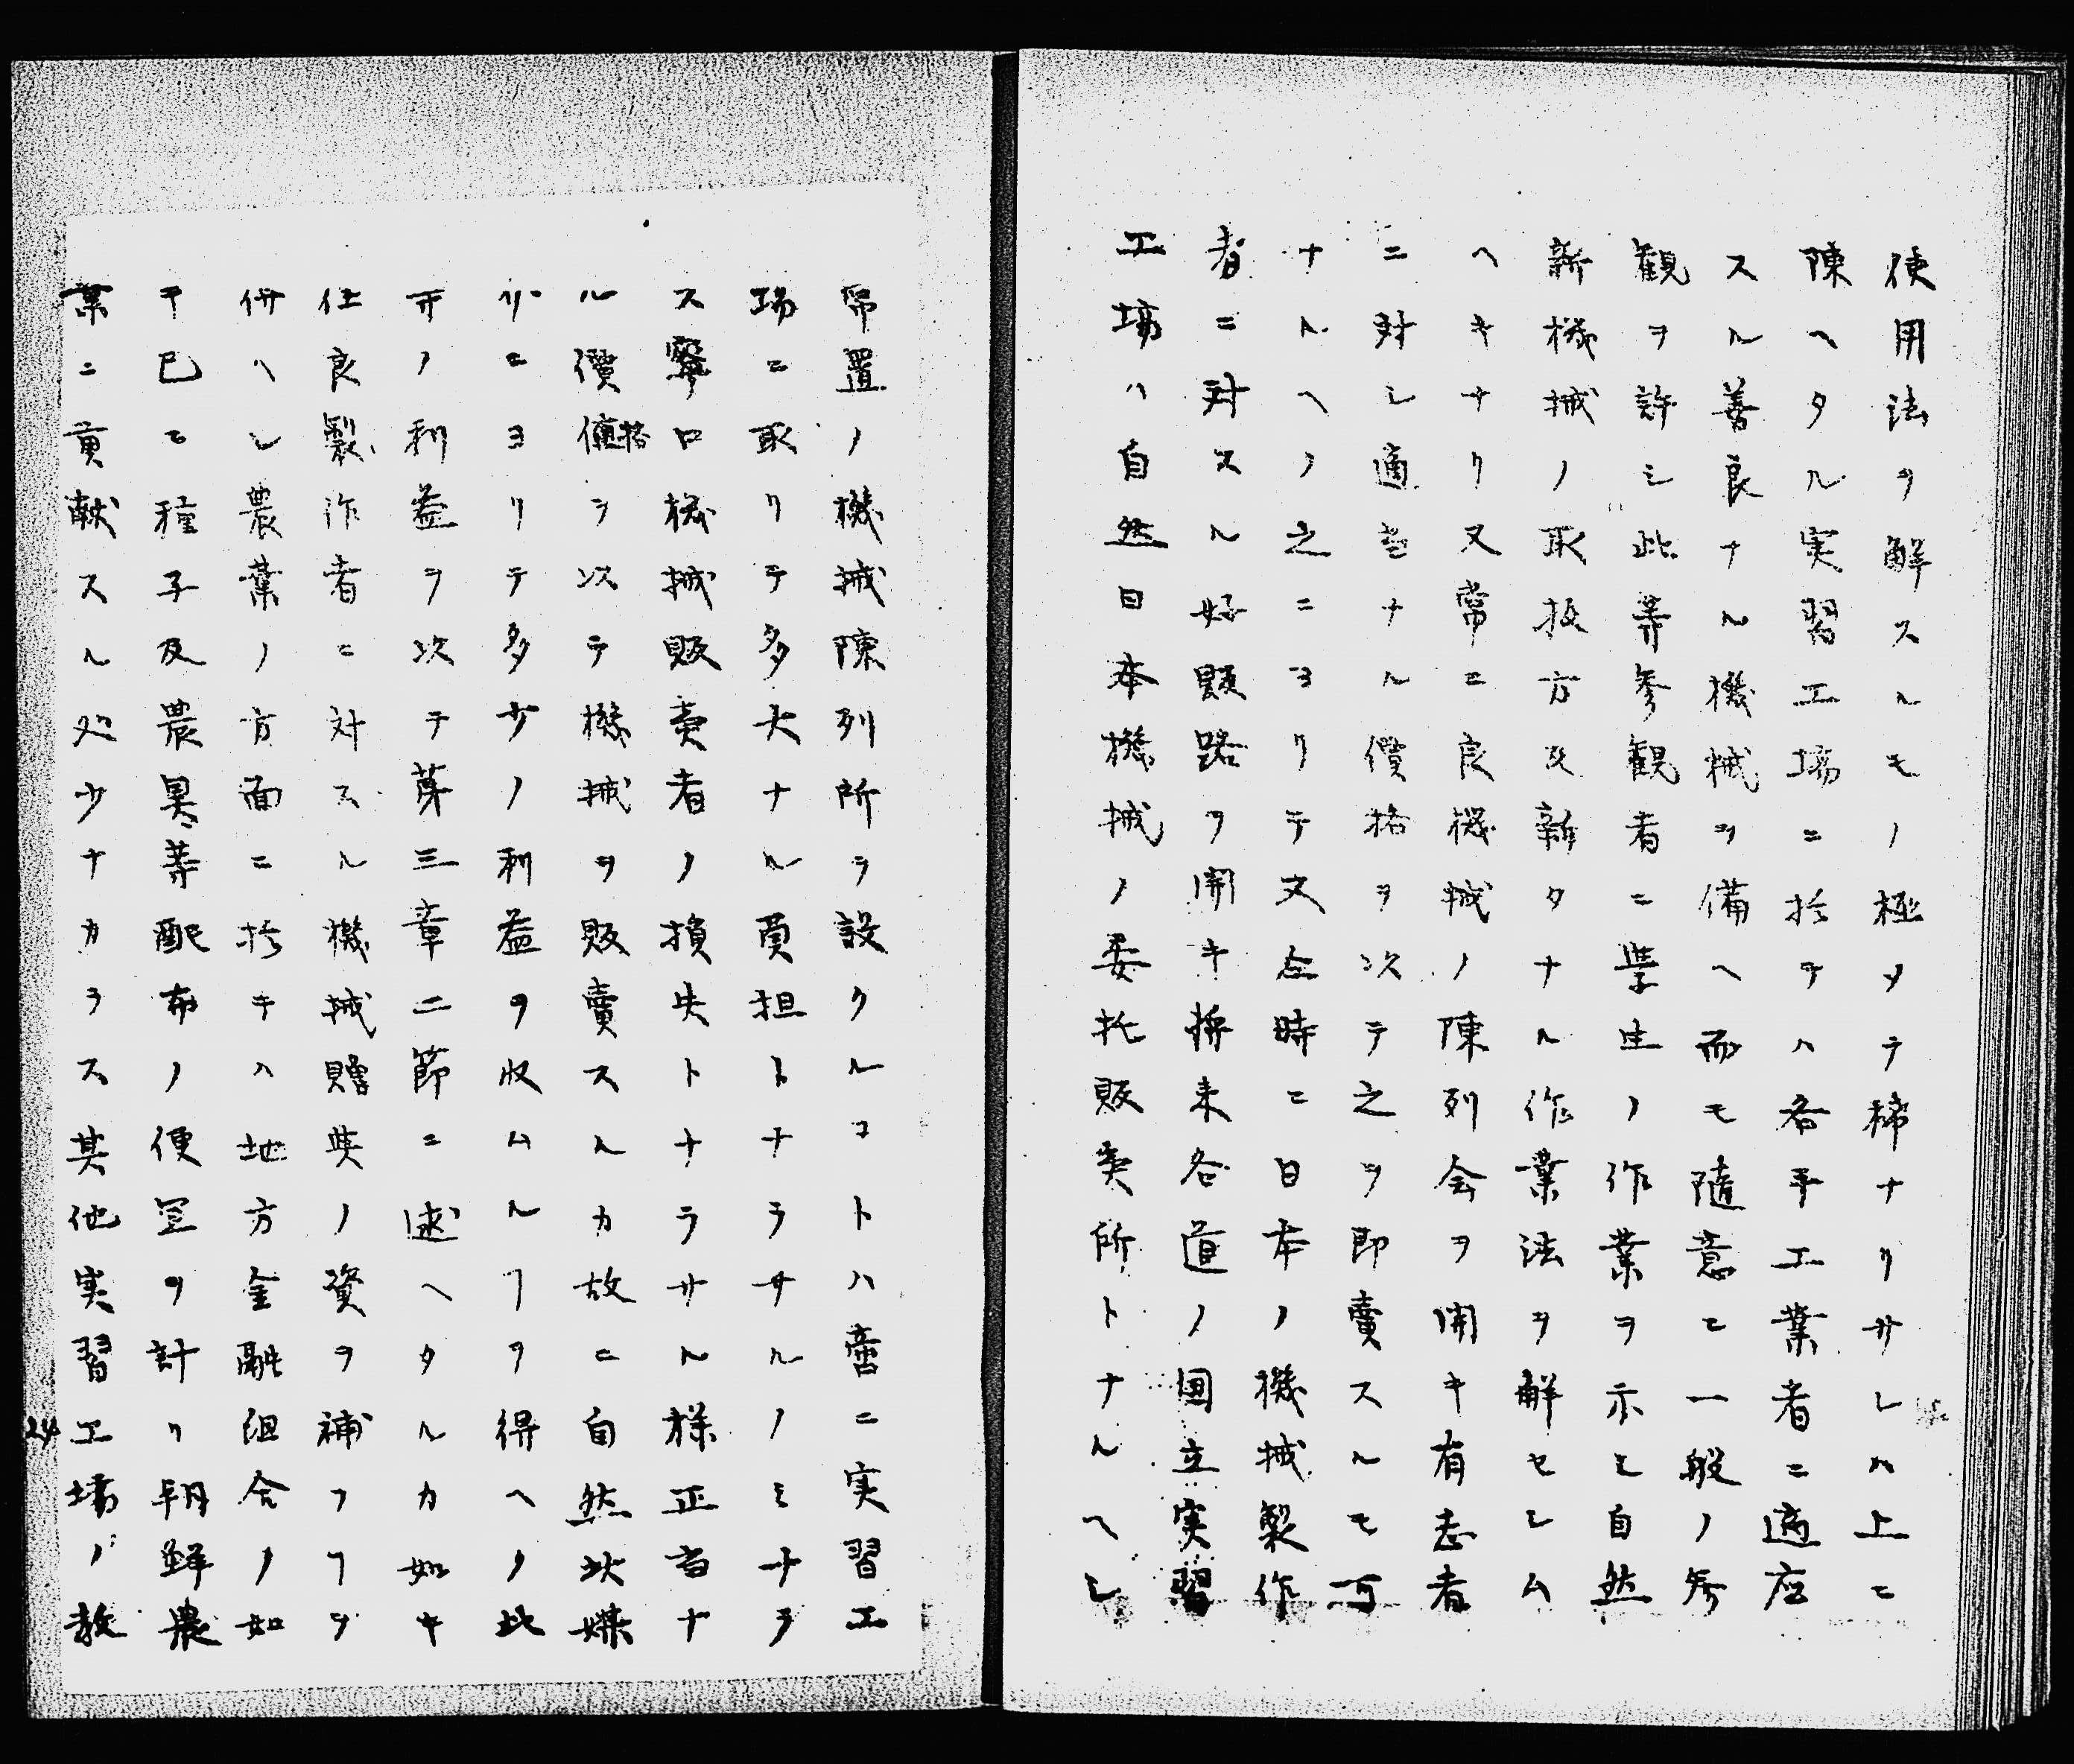 使用法ヲ解スルモノ極メテ稀ナリサレハ上ニ
陳ヘタル実習工場ニ於テハ各手工業者ニ適応
スル善良ナル機械ヲ備ヘ而モ隨意ニ一般ノ参
観ヲ許シ此等参観者ニ学生ノ作業ヲ示シ自然
新機械ノ取扱方及新タナル作業法ヲ解セシム
ヘキナリ又常ニ良機械ノ陳列会ヲ開キ有志者
ニ対シ適当ナル價格ヲ以テ之ヲ即賣スルモ可
ナルヘク之ニヨリテ又左時ニ日本ノ機械製作
者ニ対スル好販路ヲ開キ将来各道ノ国立実習
工場ハ自然日本機械ノ委托販売所トナルヘシ
常置ノ機械陳列所ヲ設クルコトハ啻ニ実習工
場ニ取リテ多大ナル負担トナラサルノミナラ
ス寧ロ機械販売者ノ損失トナラサル様正当ナ
ル價格ヲ以テ機械ヲ販賣スルカ故ニ自然此媒
介ニヨリテ多少ノ利益ヲ収ムルヿヲ得ヘク此
ノ利益ヲ以テ第三章二節ニ述ヘタルカ如キ
佳良製作者ニ対スル機械贈与ノ資ヲ補フヿヲ
併ヘシ農業ノ方面ニ於テハ地方金融組合ノ如
キ已ニ種子及農具等配布ノ便宜ヲ計リ朝鮮農
業ニ貢献スル処少ナカラス其他実習工場ノ教
24